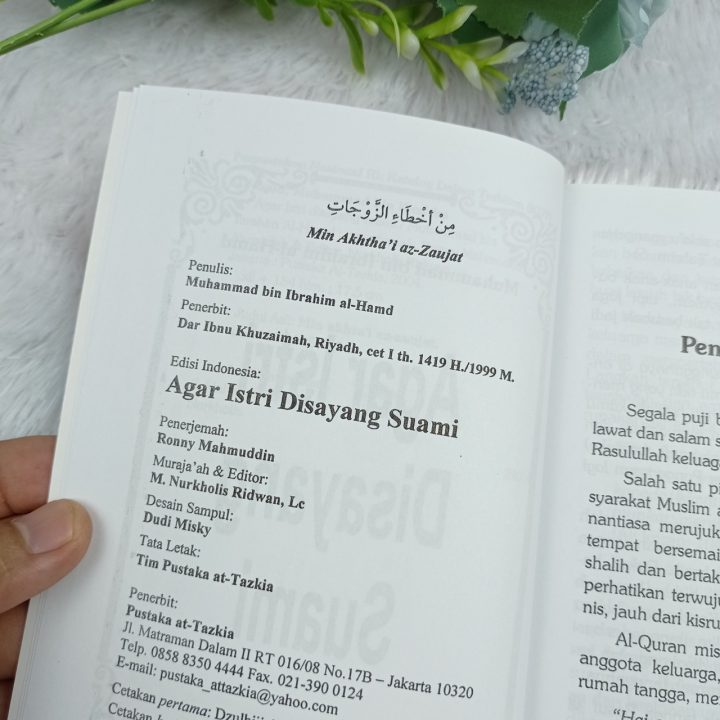 مِنْ أَخْطَاءِ الزَّوْجَاتِ
Min Akhtha'i az-Zaujat
Penulis:
Muhammad bin Ibrahim al-Hamd
Penerbit:
Dar Ibnu Khuzaimah, Riyadh, cet I th. 1419 H./1999 M.
Edisi Indonesia:
Agar Istri Disayang Suami
Penerjemah:
Ronny Mahmuddin
Muraja'ah & Editor:
M. Nurkholis Ridwan, Lc
Desain Sampul:
Dudi Misky
Tata Letak:
Tim Pustaka at-Tazkia
Penerbit:
Pustaka at-Tazkia
Jl. Matraman Dalam II RT 016/08 No.17B – Jakarta 10320
Telp. 0858 8350 4444 Fax. 021-390 0124
E-mail: pustaka_attazkia@yahoo.com
Cetakan pertama:
Cetakan
Pen
Segala puji b
lawat dan salam s
Rasulullah keluaga
Salah satu pi
syarakat Muslim a
nantiasa merujuk
tempat bersemai
shalih dan bertak
perhatikan terwuju
nis, jauh dari kisru
Al-Quran mis
anggota keluarga,
rumah tangga, me
"Hai